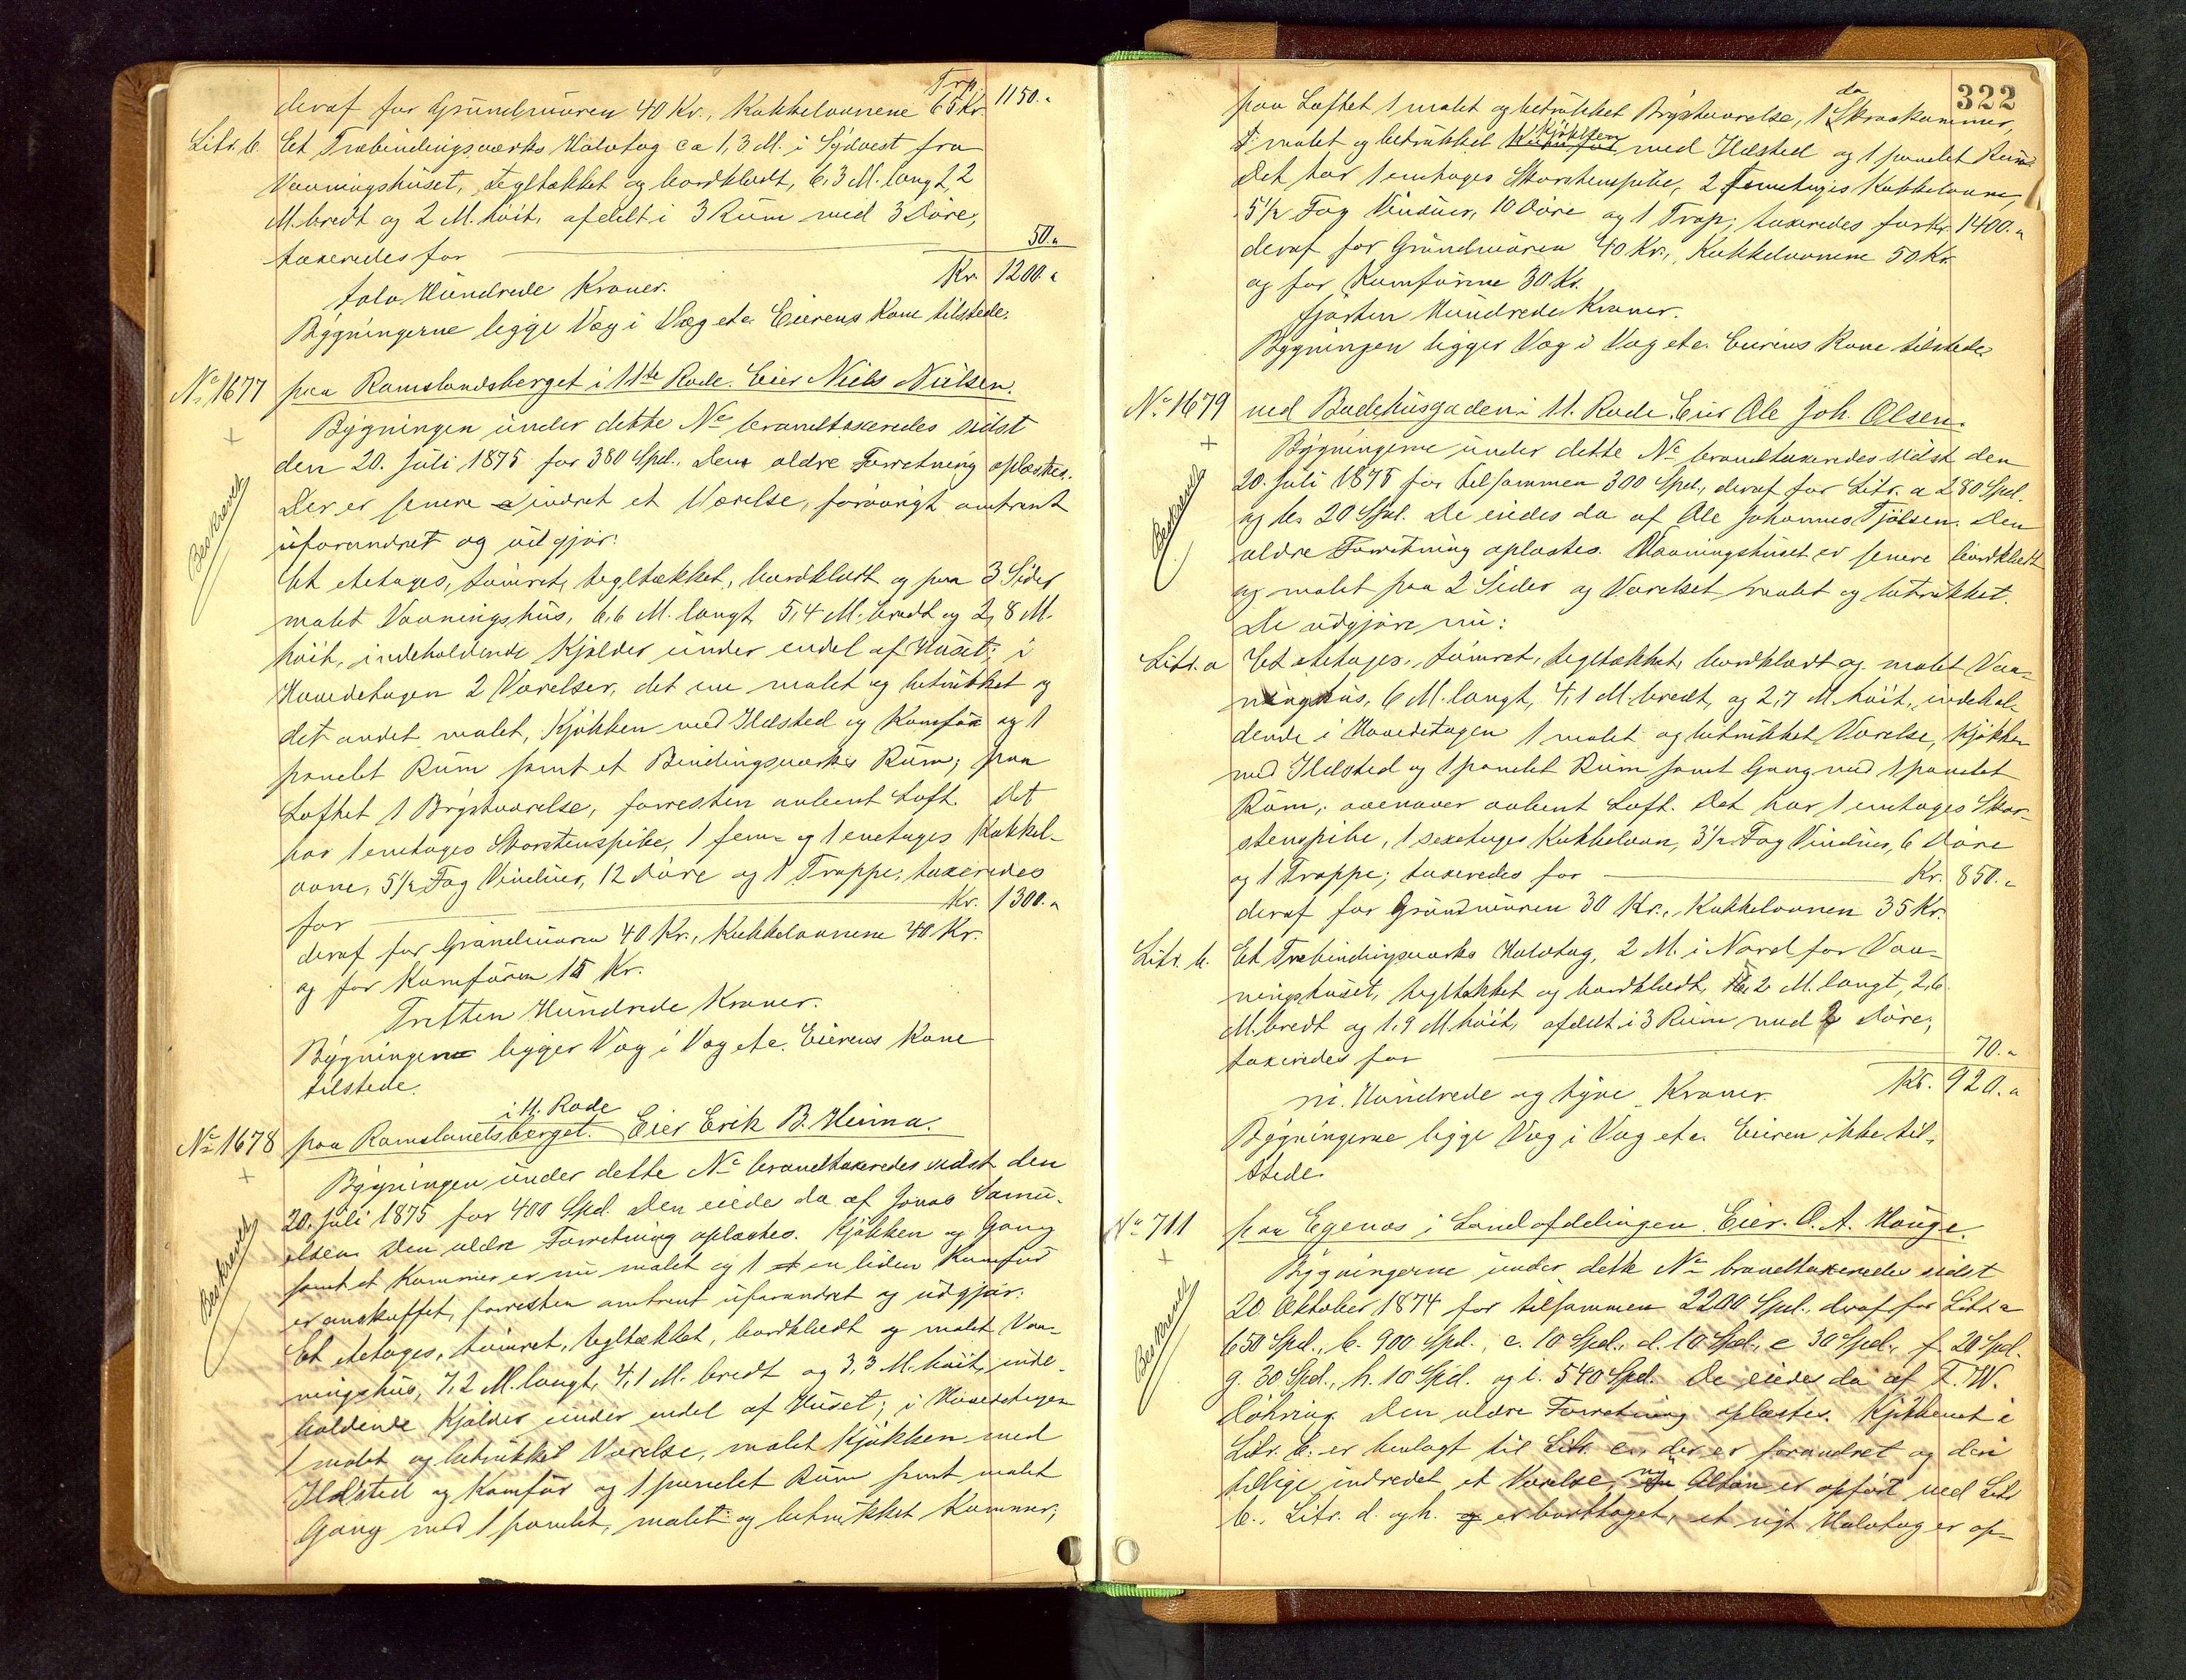 Trp.
deraf for Grundmuren 40 Kr., Kakkelovnene 65 Kr. 1150.„
Litr. b. Et Træbindingsværks Halvtag ca 1,3 M. i Sydvest fra
Vaaningshuset, tegltækket og bordklædt, 6,3 M. langt, 2
M. bredt og 2 M. höit, afdelt i 3 Rum med 3 Döre,
taxeredes for 50.„
Kr. 1200.„
tolv Hundrede Kroner.
Bygningerne ligge Væg i Væg etc. Eierens Kone tilstede.
No 1677 paa Ramslandsberget i 11te Rode. Eier Niels Nielsen.
Bygningen under dette No brandtaxeredes sidst
den 20. Juli 1875 for 380 Spd. Den ældre Forretning oplæstes.
Der er senere indret et Værelse, forövrigt omtrent
uforandret og udgjör:
Beskrevet
Et etetages, tömret, tegltækket, bordklædt og paa 3 Sider
malet Vaaningshus, 6,6 M. langt, 5,4 M. bredt og 2,8 M.
höit, indeholdende Kjælder under endel af Huset; i
Hovedetagen 2 Værelser, det ene malet og betrukket og
det andet malet, Kjökken med Ildsted og Komfur og 1
panelet Rum samt et Bindingsværks Rum; paa
Loftet 1 Brystværelse, forresten aabent Loft. Det
har 1 enetages Skorstenspibe, 1 fem- og 1 enetages Kakkel-
ovne, 5 1/2 Fag Vinduer, 12 Döre og 1 Trappe; taxeredes
for Kr. 1300.„
deraf for Grundmuren 40 Kr., Kakkelovnene 40 Kr.
og for Komfuren 15 Kr.
Tretten Hundrede Kroner.
Bygningen ligger Væg i Væg etc. Eierens Kone
tilstede.
i 11. Rode
No 1678 paa Ramslandsberget. Eier Erik B. Heima.
Bygningen under dette No brandtaxeredes sidst den
20. Juli 1875 for 400 Spd. Den eiedes da af Jonas Samu-
elsen. Den ældre Forretning oplæstes. Kjökken og Gang
samt et Kammer er nu malet og 1 en liden Komfur
er anskaffet, forresten omtrent uforandret og udgjör:
Beskrevet
Et etetages, tömret, tegltækket, bordklædt og malet Vaa-
ningshus, 7,2 M. langt, 4,1 M. bredt og 3,3 M. höit, inde-
holdende Kjælder under endel af Huset; i Hovedetagen
1 malet og betrukket Værelse, malet Kjökken med
Ildsted og Komfur og 1 panelet Rum samt malet
Gang med 1 panelet, malet og betrukket Kammer;
322
paa Loftet 1 malet og betrukket Brystværelse, 1 do Skraakammer,
1 malet og betrukket Kjökken med Ildsted og 1 panelet Rum.
Det har 1 enetages Skorstenspibe, 2 femetages Kakkelovne,
5 1/2 Fag Vinduer, 10 Döre og 1 Trap; taxeredes for Kr. 1400.„
deraf for Grundmuren 40 Kr., Kakkelovnene 50 Kr.
og for Komfurene 30 Kr.
fjorten Hundrede Kroner.
Bygningen ligger Væg i Væg etc. Eierens Kone tilstede.
No 1679 ved Badehusgaden i 11. Rode. Eier Ole Joh. Olsen.
Bygningerne under dette No brandtaxeredes sidst den
20. Juli 1875 for tilsammen 300 Spd., deraf for Litr. a 280 Spd.
og b. 20 Spd. De eiedes da af Ole Johannes Tjölsen. Den
ældre Forretning oplæstes. Vaaningshuset er senere bordklædt
Beskrevet
og malet paa 2 Sider og Værelset malet og betrukket.
De udgjöre nu:
Litr. a Et etetages, tömret, tegltækket, bordklædt og malet Vaa-
ningshus, 6 M. langt, 4,1 M. bredt, og 2,7 M. höit, indehol-
dende i Hovedetagen 1 malet og betrukket Værelse, Kjökken
med Ildsted og 1 panelet Rum samt Gang med 1 panelet
Rum; ovenover aabent Loft. Det har 1 enetages Skor-
stenspibe, 1 sexetages Kakkelovn, 3 1/2 Fag Vinduer, 6 Döre
og 1 Trappe; taxeredes for Kr. 850.„
deraf for Grundmuren 30 Kr., Kakkelovnen 35 Kr.
Litr. b. Et Træbindingsværks Halvtag, 2 M. i Nord for Vaa-
ningshuset, tegltækket og bordklædt, 2 M. langt, 2,6
M. bredt og 1,9 M. höit, afdelt i 3 Rum med 2 Döre,
taxeredes for 70.„
ni Hundrede og tyve Kroner. Kr. 920.„
Bygningerne ligge Væg i Væg etc. Eieren ikke til-
stede.
No 711 paa Egenæs i Landafdelingen. Eier. O. A. Hauge.
Bygningerne under dette No brandtaxeredes sidst
20. Oktober 1874 for tilsammen 2200 Spd., deraf for Litr. a
650 Spd., b. 900 Spd., c. 10 Spd., d. 10 Spd., e 30 Spd., f. 20 Spd.
Beskrevet
g. 30 Spd., h. 10 Spd. og i. 540 Spd. De eiedes da af T. W.
Döhring. Den ældre Forretning oplæstes. Kjökkenet i
Litr. b. er henlagt til Litr. c., der er forandret og deri
tillige indredet et Værelse, ny Altan er opfört ved Litr.
b., Litr. d. og h. er borttaget, et nyt Halvtag er op-